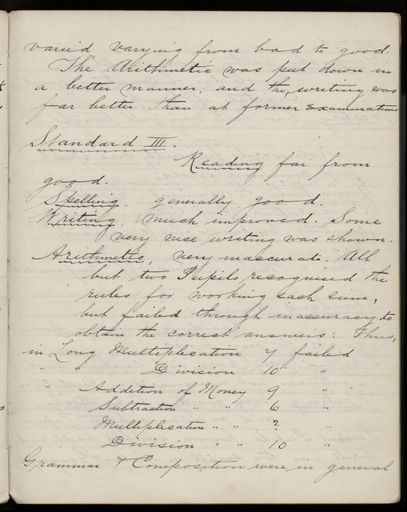 varied varying from bad to good.
The Arithmetic was put down in
a better manner, and the, writing was
far better than at former examinations
Standard III.
Reading far from
good.
Spelling. generally good.
Writing, much improved. Some
very nice writing was shown.
Arithmetic, very inaccurate. All
but two Pupils recognised the
rules for working each sum,
but failed through inaccuracy to
obtain the correct answers. Thus,
in Long Multiplication 7 failed
" " Division 10 "
" Addition of Money 9 "
Subtraction " " 6 "
Multiplication " " ? "
Division " " 10 "
Grammar & Composition were in general